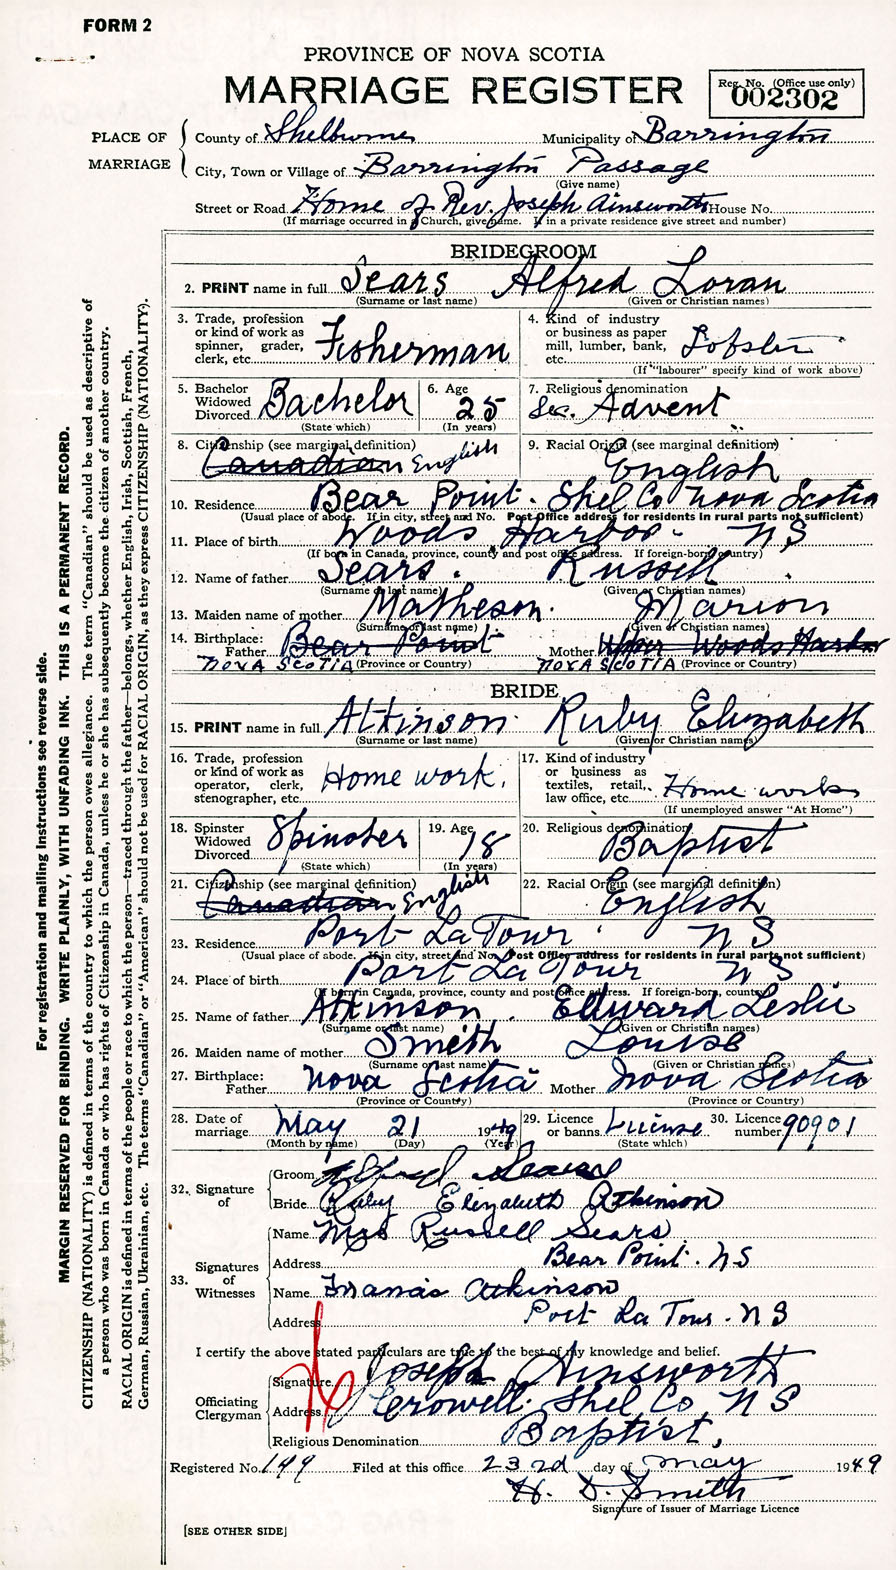 FORM 2
PROVINCE OF NOVA SCOTIA
MARRIAGE REGISTER
Reg. No. (Office use only)
002302
PLACE OF MARRIAGE
County of Shelburne Municipality of Barrington
City, Town or Village of Barrington Passage
(Give name)
Street or Road Home of Rev. Joseph Ainsworth House No.
(If marriage occurred in a Church, give name. If in a private residence give street and number)
BRIDEGROOM
2. PRINT name in full Sears Alfred Loran
(Surname or last name) (Given or Christian names)
3. Trade, profession or kind of work as spinner, grader, clerk, etc. Fisherman
4. Kind of industry or business as paper mill, lumber, bank, etc. Lobster
(If "labourer" specify kind of work above)
5. Bachelor Widowed Divorced Bachelor
(State which)
6. Age 25
(In years)
7. Religious denomination Sec. Advent
8. Citizenship (see marginal definition) Canadian English
9. Racial Origin (see marginal definition) English
10. Residence Bear Point. Shel Co Nova Scotia
(Usual place of abode. If in city, street and No. Post Office address for residents in rural parts not sufficient)
11. Place of birth Woods Harbor N S
(If born in Canada, province, county and post office address. If foreign-born, country)
12. Name of father Sears. Russell
(Surname or last name) (Given or Christian names)
13. Maiden name of mother Matheson. Marion
(Surname or last name) (Given or Christian names)
14. Birthplace: Father Bear Point Mother Upper Woods Harbor
NOVA SCOTIA (Province or Country) NOVA SCOTIA (Province or Country)
BRIDE
15. PRINT name in full Atkinson Ruby Elizabeth
(Surname or last name) (Given or Christian names)
16. Trade, profession or kind of work as operator, clerk, stenographer, etc Home work.
17. Kind of industry or business as textiles, retail, law office, etc. Home work
(If unemployed answer "At Home")
18. Spinster Widowed Divorced Spinster
(State which)
19. Age 18
(In years)
20. Religious denomination Baptist
21. Citizenship (see marginal definition) Canadian English
22. Racial Origin (see marginal definition) English
23. Residence Port LaTour N S
(Usual place of abode. If in city, street and No. Post Office address for residents in rural parts not sufficient)
24. Place of birth Port La Tour N S
(If born in Canada, province, county and post office address. If foreign-born, country)
25. Name of father Atkinson. Edward Leslie
(Surname or last name) (Given or Christian names)
26. Maiden name of mother Smith Louise
(Surname or last name) (Given or Christian names)
27. Birthplace: Father Nova Scotia Mother Nova Scotia
(Province or Country) (Province or Country)
28. Date of marriage May 21 1949
(Month by name) (Day) (Year)
29. Licence or banns License
(State which)
30. Licence number 90901
32. Signature of
Groom Alfred Sears
Bride Ruby Elizabeth Atkinson
33. Signatures of Witnesses
Name Mrs Russell Sears
Address Bear Point. N S
Name Francis Atkinson
Address Port La Tour. N S
I certify the above stated particulars are true to the best of my knowledge and belief.
Officiating Clergyman
Signature Joseph Ainsworth
Address Crowell. Shel Co, N S
Religious Denomination Baptist,
Registered No. 149 Filed at this office 23rd day of May 1949
H. D. Smith
Signature of Issuer of Marriage Licence
[SEE OTHER SIDE]
For registration and mailing instructions see reverse side.
MARGIN RESERVED FOR BINDING. WRITE PLAINLY, WITH UNFADING INK. THIS IS A PERMANENT RECORD.
CITIZENSHIP (NATIONALITY) is defined in terms of the country to which the person owes allegiance. The term "Canadian" should be used as descriptive of
a person who was born in Canada or who has rights of Citizenship in Canada, unless he or she has subsequently become the citizen of another country.
RACIAL ORIGIN is defined in terms of the people or race to which the person—traced through the father—belongs, whether English, Irish, Scottish, French,
German, Russian, Ukrainian, etc. The terms "Canadian" or "American" should not be used for RACIAL ORIGIN, as they express CITIZENSHIP (NATIONALITY).